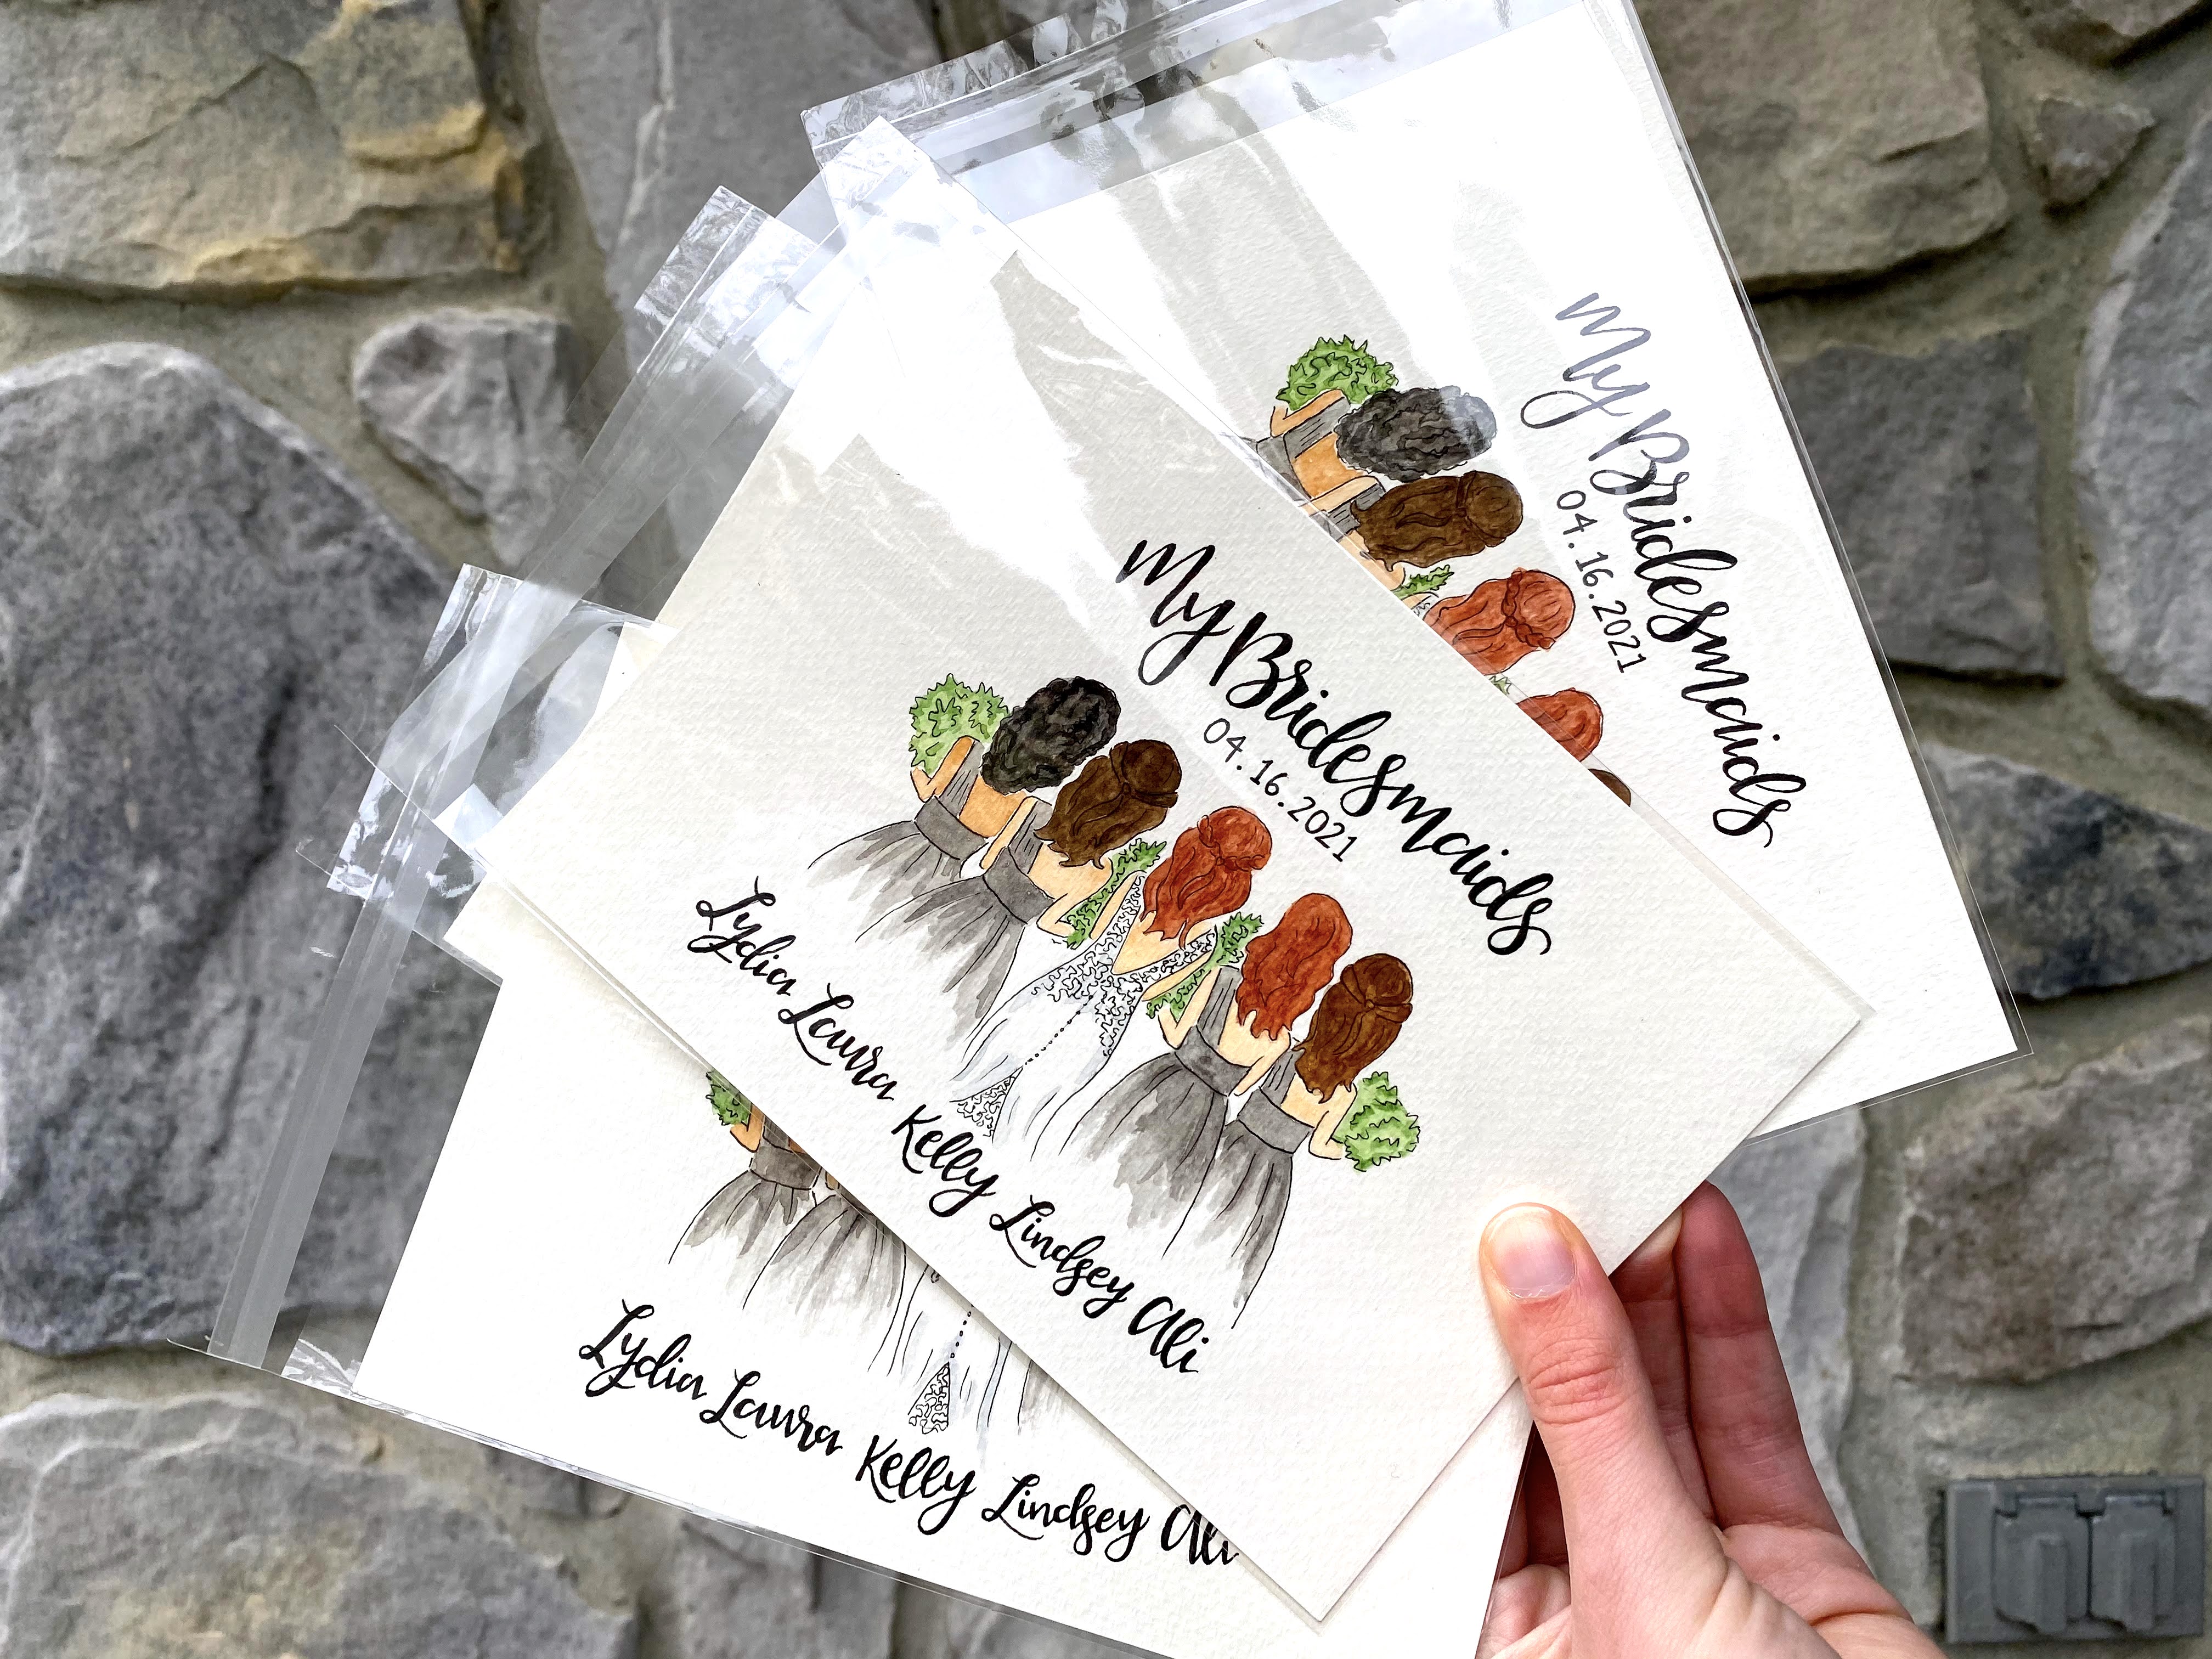 My Bridesmaids
04.16.2021
My Bridesmaids
04.16.2021
Lydia Laura Kelly Lindsey Ali
Lydia Laura Kelly Lindsey Ali